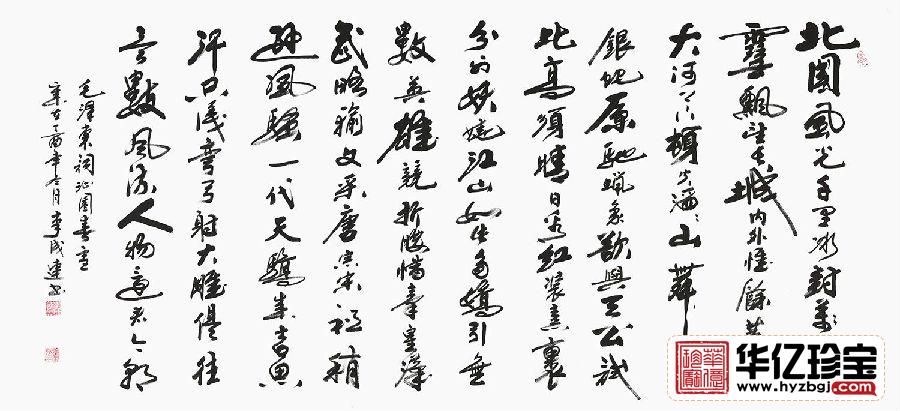 北国风光千里冰封万
雪飘望长城内外惟馀莽
大河上下顿失滔滔山舞
银蛇原驰蜡象欲与天公试
比高须晴日看红装素裹
分外妖娆江山如此多娇引无
数英雄竞折腰惜秦皇汉
武略输文采唐宗宋祖稍
逊风骚一代天骄成吉思
汗只识弯弓射大雕俱往
矣数风流人物还看今朝
毛泽东词沁园春雪
李成连书
华亿珍宝
www.hyzbgj.com